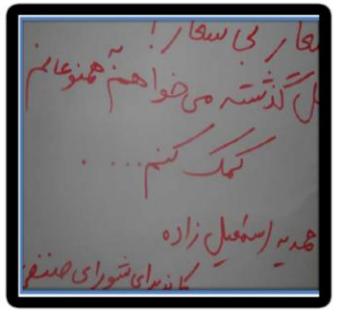 شعار بی شعار!
گذشته می خواهم همنوعانم
کمک کنم....
اسمعیل زاده
کاندیدای شورای صنفی